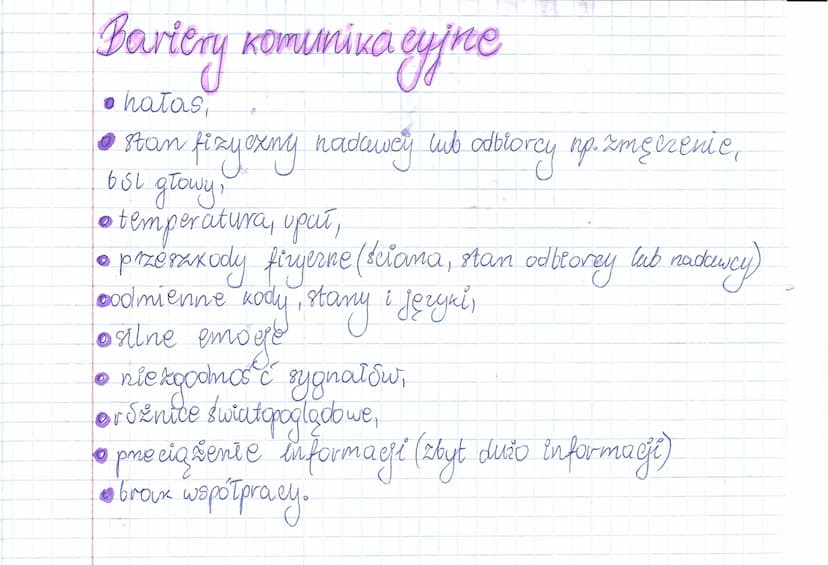 Bariery komunikacyjne
• hałas,
• stan fizyczny nadawcy lub odbiorcy np. zmęczenie,
ból głowy,
• temperatura, upał,
• przeszkody fizyczne (ściana, stan odbiorcy lub nadawcy)
• odmienne kody, stany i języki,
• silne emocje
• niezgodność sygnałów,
• różnice światopoglądowe,
• przeciążenie informacji (zbyt dużo informacji)
• brak współpracy.